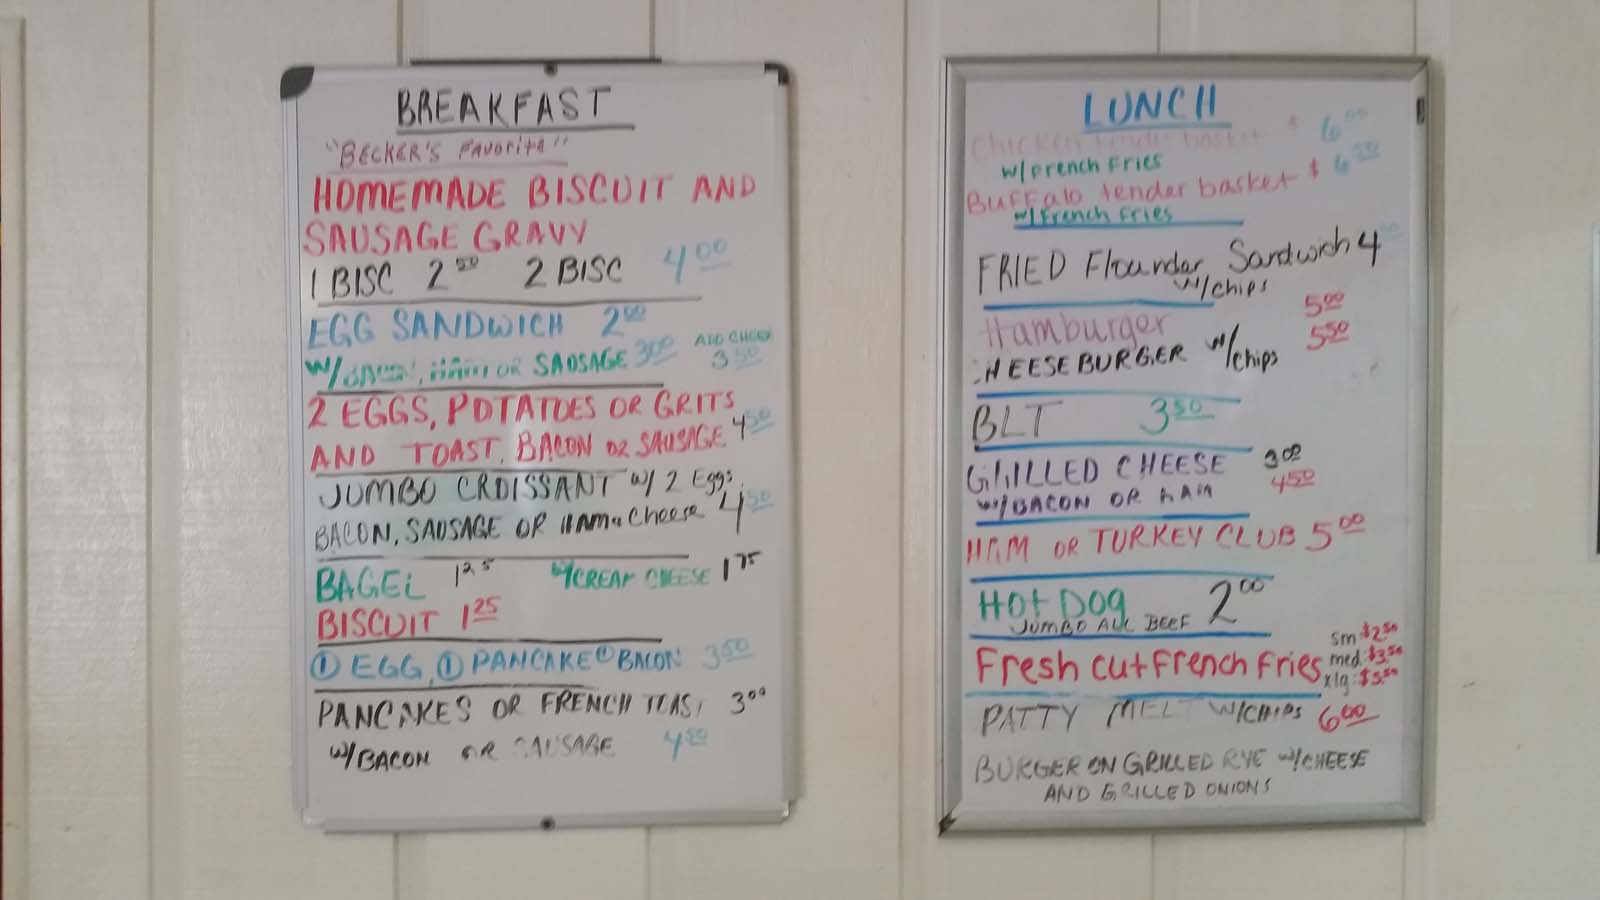 BREAKFAST
"BECKER'S FAVORITE"
HOMEMADE BISCUIT AND
SAUSAGE GRAVY
1 BISC 2 50 2 BISC 4 00
EGG SANDWICH 2 00
W/BACON, HAM OR SAUSAGE 3 00 ADD CHEESE
3 50
2 EGGS, POTATOES OR GRITS
AND TOAST, BACON OR SAUSAGE 4 50
JUMBO CROISSANT W/ 2 Eggs,
BACON, SAUSAGE OR HAM & Cheese 4 50
BAGEL 1 25 W/CREAM CHEESE 1 75
BISCUIT 1 25
① EGG, ① PANCAKE ① BACON 3 50
PANCAKES OR FRENCH TOAST 3 00
W/BACON OR SAUSAGE 4 50
LUNCH
Chicken tender basket $ 6 00
w/French Fries
Buffalo tender basket $ 6 50
w/French Fries
FRIED Flounder Sandwich 4
w/chips
Hamburger 5 00
CHEESEBURGER w/chips 5 50
BLT 3 50
GRILLED CHEESE 3 00
W/BACON OR HAM 4 50
HAM OR TURKEY CLUB 5 00
HOT DOG 2 00
JUMBO ALL BEEF
sm $2.50
Fresh cut French Fries med. $3.50
xlg: $5.50
PATTY MELT W/CHIPS 6 00
BURGER ON GRILLED RYE W/CHEESE
AND GRILLED ONIONS